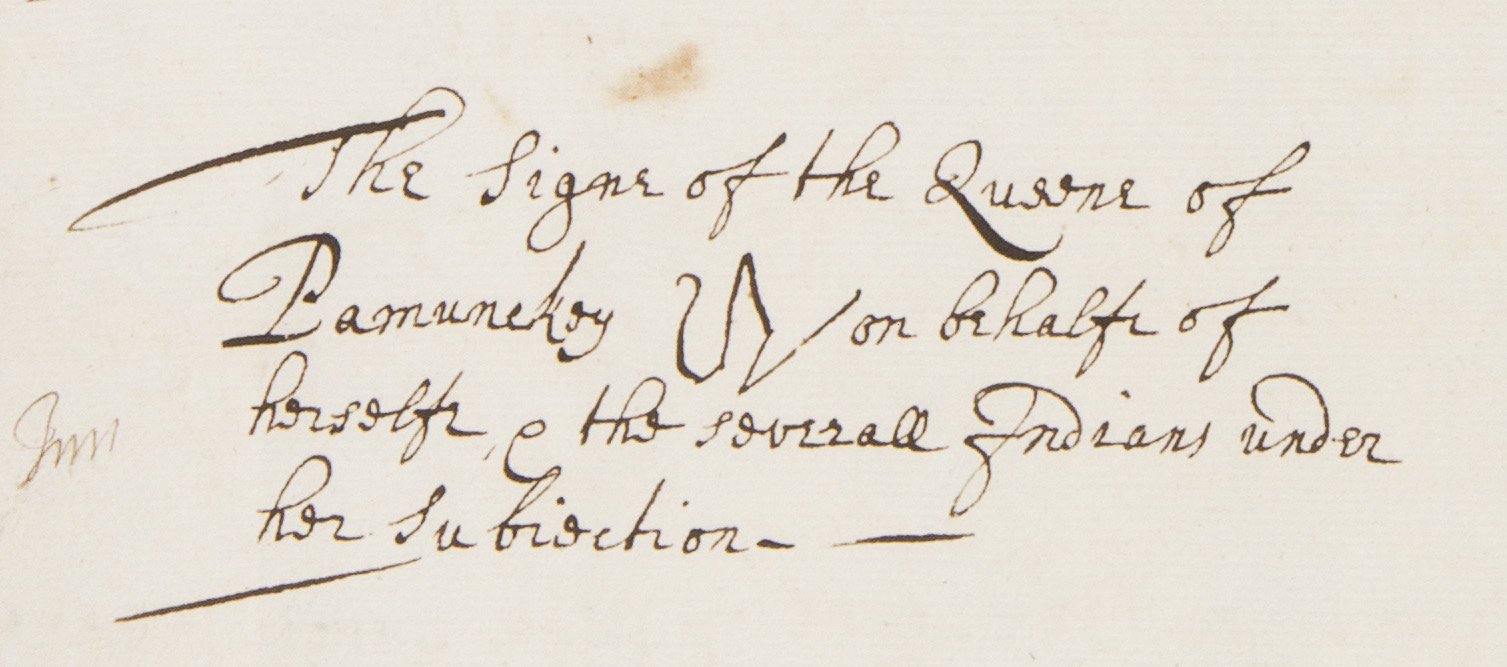 The Signe of the Queene of
Pamunckey on behalfe of
herselfe, & the severall Indians under
her Subiection